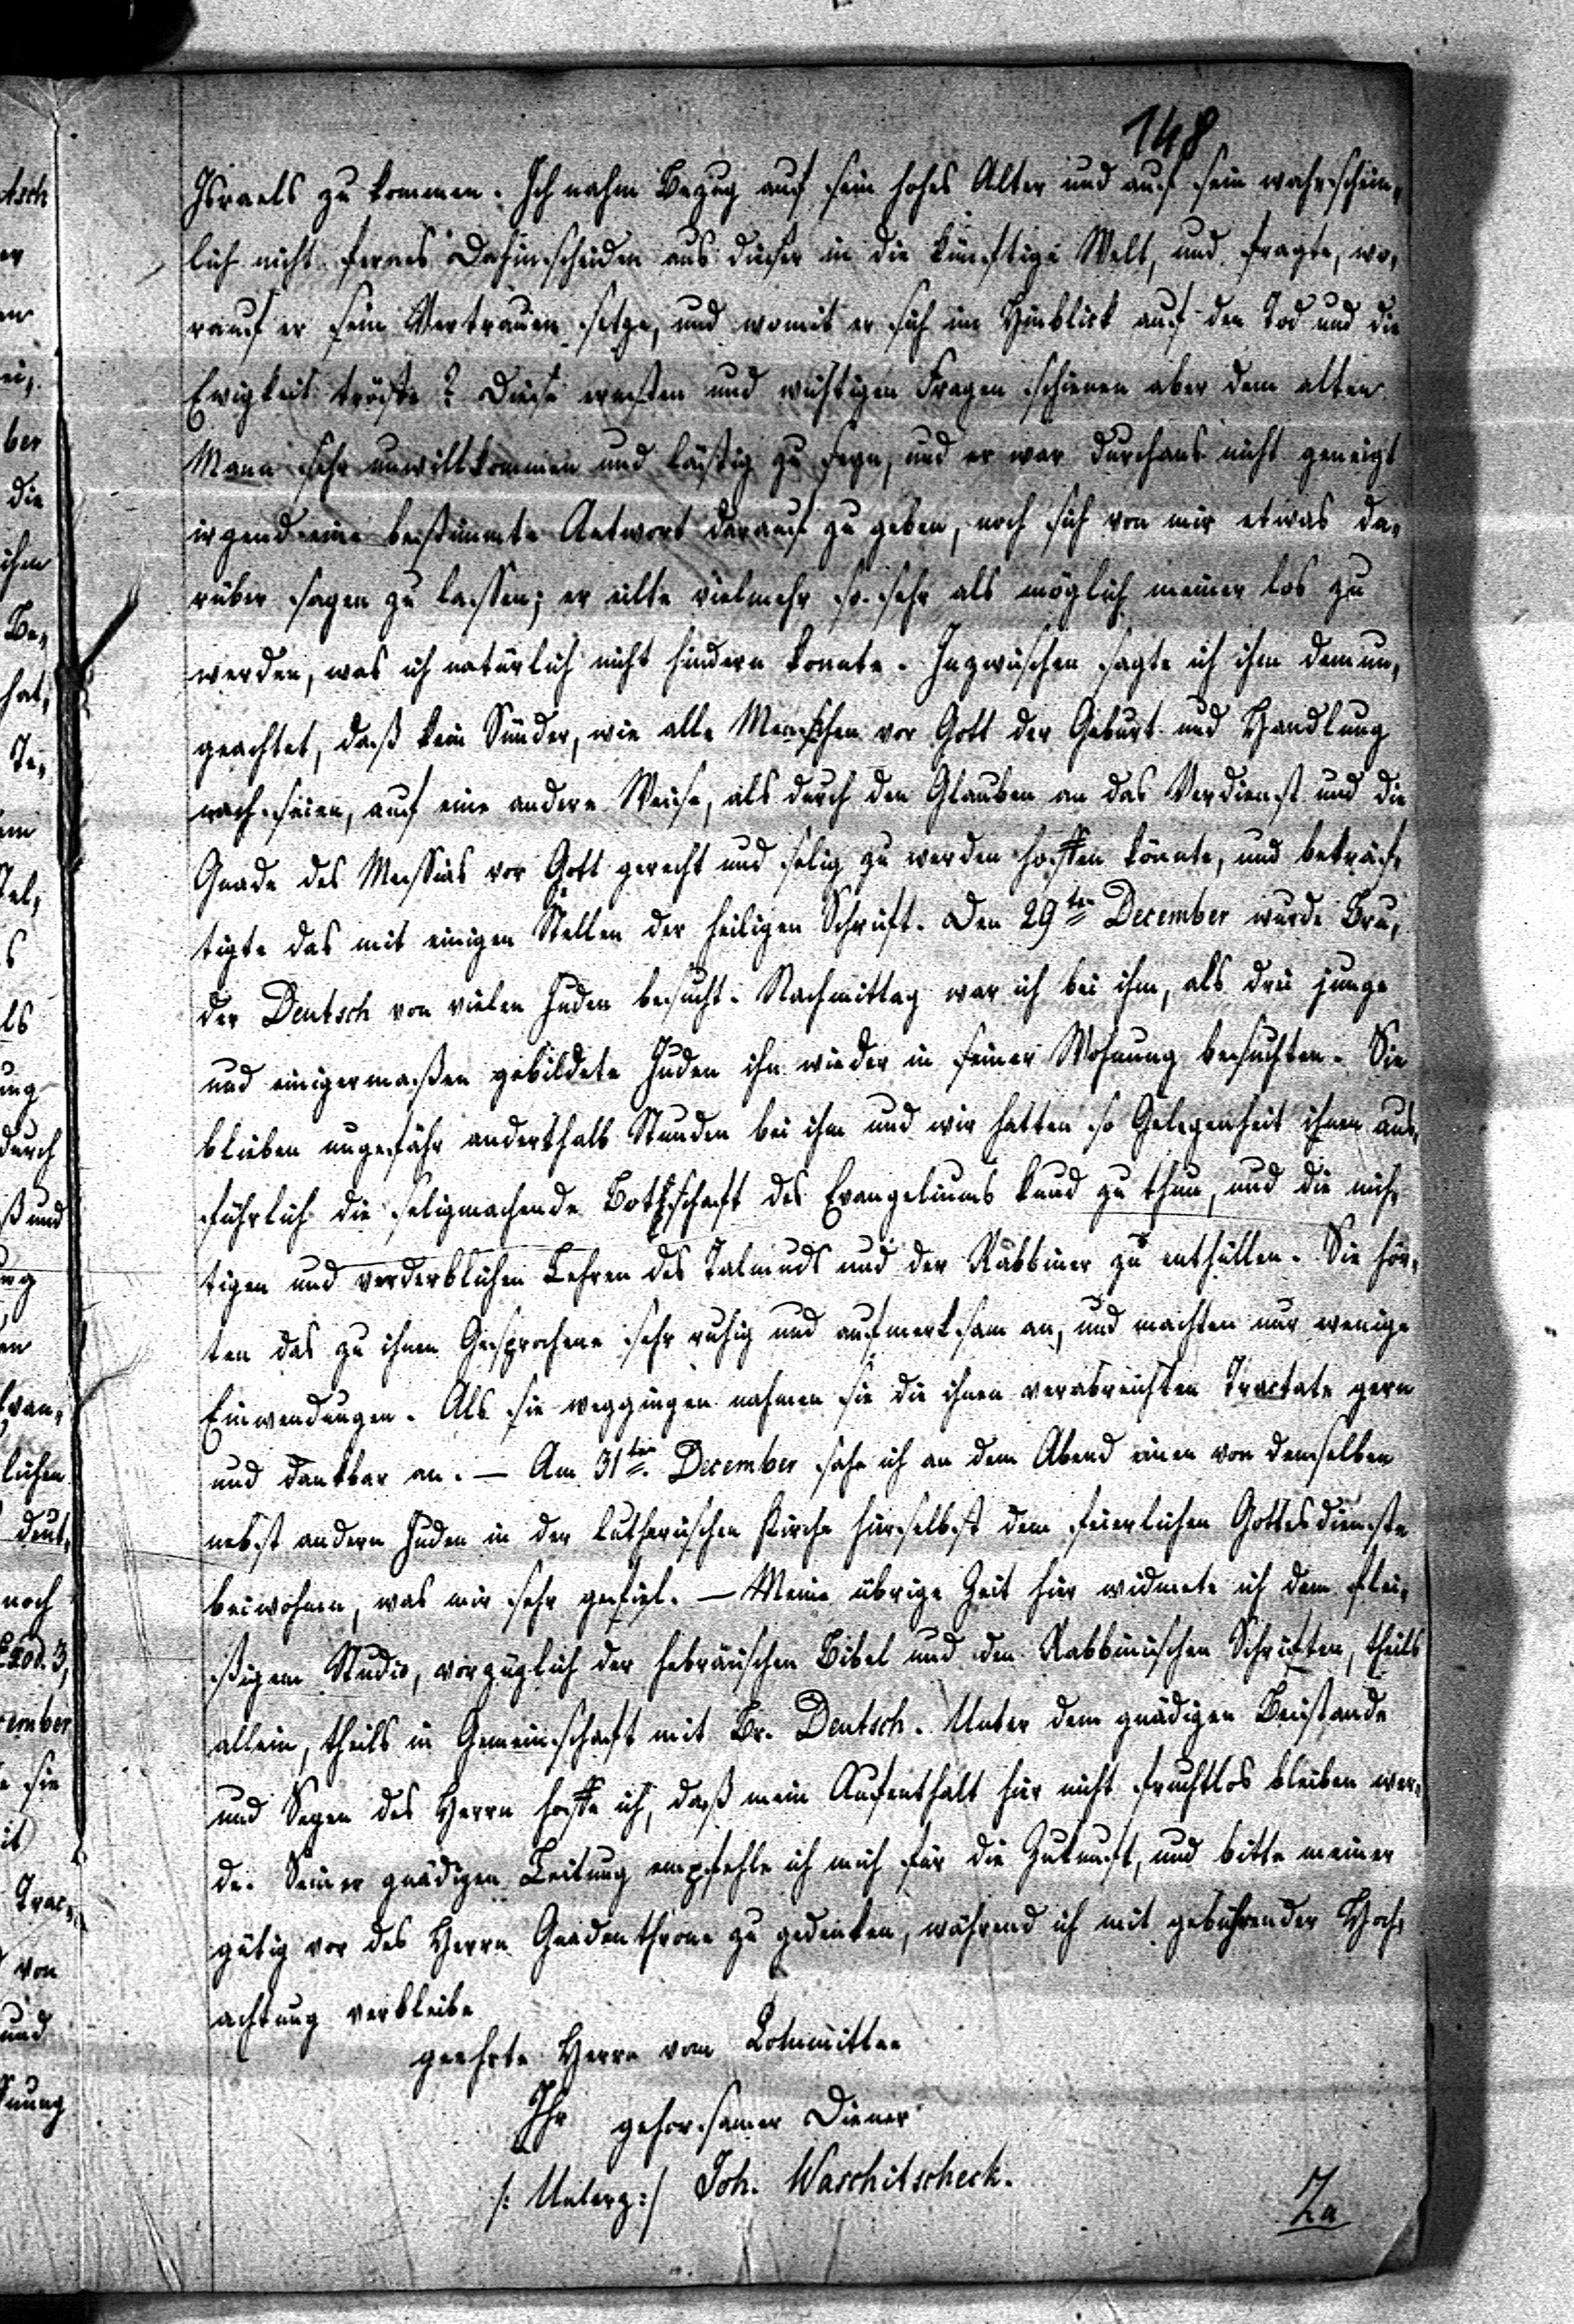 148
Israels zu kommen. Ich nahm Bezug auf sein hohes Alter und auf sein wahrschein,
lich nicht fernes Dahinscheiden aus dieser in die künftige Welt, und fragte, wo,
rauf er sein Vertrauen setze, und womit er sich im Hinblick auf den Tod und die
Ewigkeit tröste? Diese ernsten und wichtigen Fragen schienen aber dem alten
Mann sehr unwillkommen und lästig zu seyn, und er war durchaus nicht geneigt
irgend eine bestimmte Antwort darauf zu geben, noch sich von mir etwas da,
rüber sagen zu lassen; er eilte vielmehr so sehr als möglich meiner los zu
werden, was ich natürlich nicht hindern konnte. Inzwischen sagte ich ihm demun,
geachtet, daß kein Sünder, wie alle Menschen vor Gott der Geburt und Handlung
nach seien, auf eine andere Weise, als durch den Glauben an das Verdienst und die
Gnade des Messias vor Gott gerecht und selig zu werden hoffen könnte, und bekräf,
tigte das mit einigen Stellen der heiligen Schrift. Den 29ten December wurde Bru,
der Deutsch von vielen Juden besucht. Nachmittag war ich bei ihm, als drei junge
und einigermaßen gebildete Juden ihn wieder in seiner Wohnung besuchten. Sie
blieben ungefähr anderthalb Stunden bei ihm und wir hatten so Gelegenheit ihnen aus,
führlich die seligmachende Bothschaft des Evangeliums kund zu thun, und die nich,
tigen und verderblichen Lehren des Talmuds und der Rabbiner zu enthüllen. Sie hör,
ten das zu ihnen Gesprochene sehr ruhig und aufmerksam an, und machten nur wenige
Einwendungen. Als sie weggingen nahmen sie die ihnen verabreichten Tractate gern
und dankbar an. — Am 31ten December sahe ich an dem Abend einen von demselben
nebst andern Juden in der lutherischen Kirche hierselbst dem feierlichen Gottesdienste
beiwohnen, was mir sehr gefiel. — Meine übrige Zeit hier widmete ich dem flei,
ßigem Studio, vorzüglich der hebräischen Bibel und den Rabbinischen Schriften, theils
allein, theils in Gemeinschaft mit Br. Deutsch. Unter dem gnädigen Beistande
und Segen des Herrn hoffe ich, daß mein Aufenthalt hier nicht fruchtlos bleiben wer,
de. Seiner gnädigen Leitung empfehle ich mich für die Zukunft, und bitte meiner
gütig vor des Herrn Gnadenthrone zu gedenken, während ich mit gebührender Hoch,
achtung verbleibe
geehrte Herrn vom Committee
Ihr gehorsamer Diener
/: Unterz:/ Joh. Waschitscheck.
Za